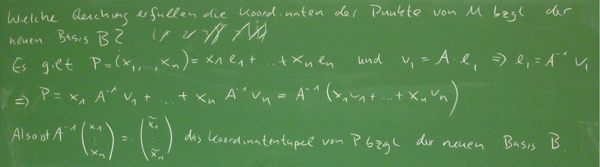 Welche Gleichung erfüllen die Koordinaten der Punkte von M bzgl. der
neuen Basis B?
Es gilt P=(x₁,...,xₙ)= x₁ e₁ + ... + xₙ eₙ und v₁ = A · e₁ ⇒ e₁ = A⁻¹ v₁
⇒ P = x₁ A⁻¹ v₁ + ... + xₙ A⁻¹ vₙ = A⁻¹ (x₁v₁ + ... + xₙ vₙ)
Also ist A⁻¹ (x₁ ⋮ xₙ) =: (x̃₁ ⋮ x̃ₙ) das Koordinatentupel von P bzgl. der neuen Basis B.